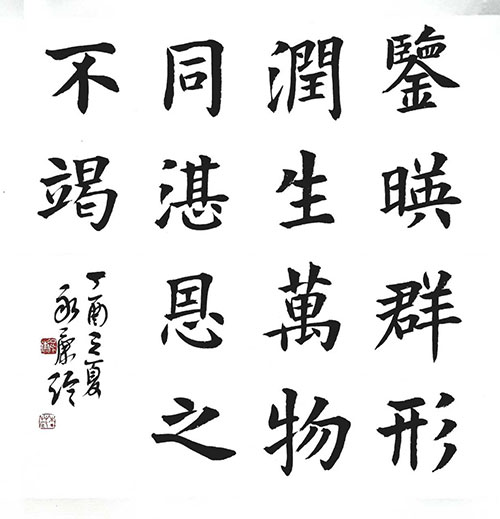 鑒暎群形
潤生萬物
同湛恩之
不竭
丁酉之夏
永康